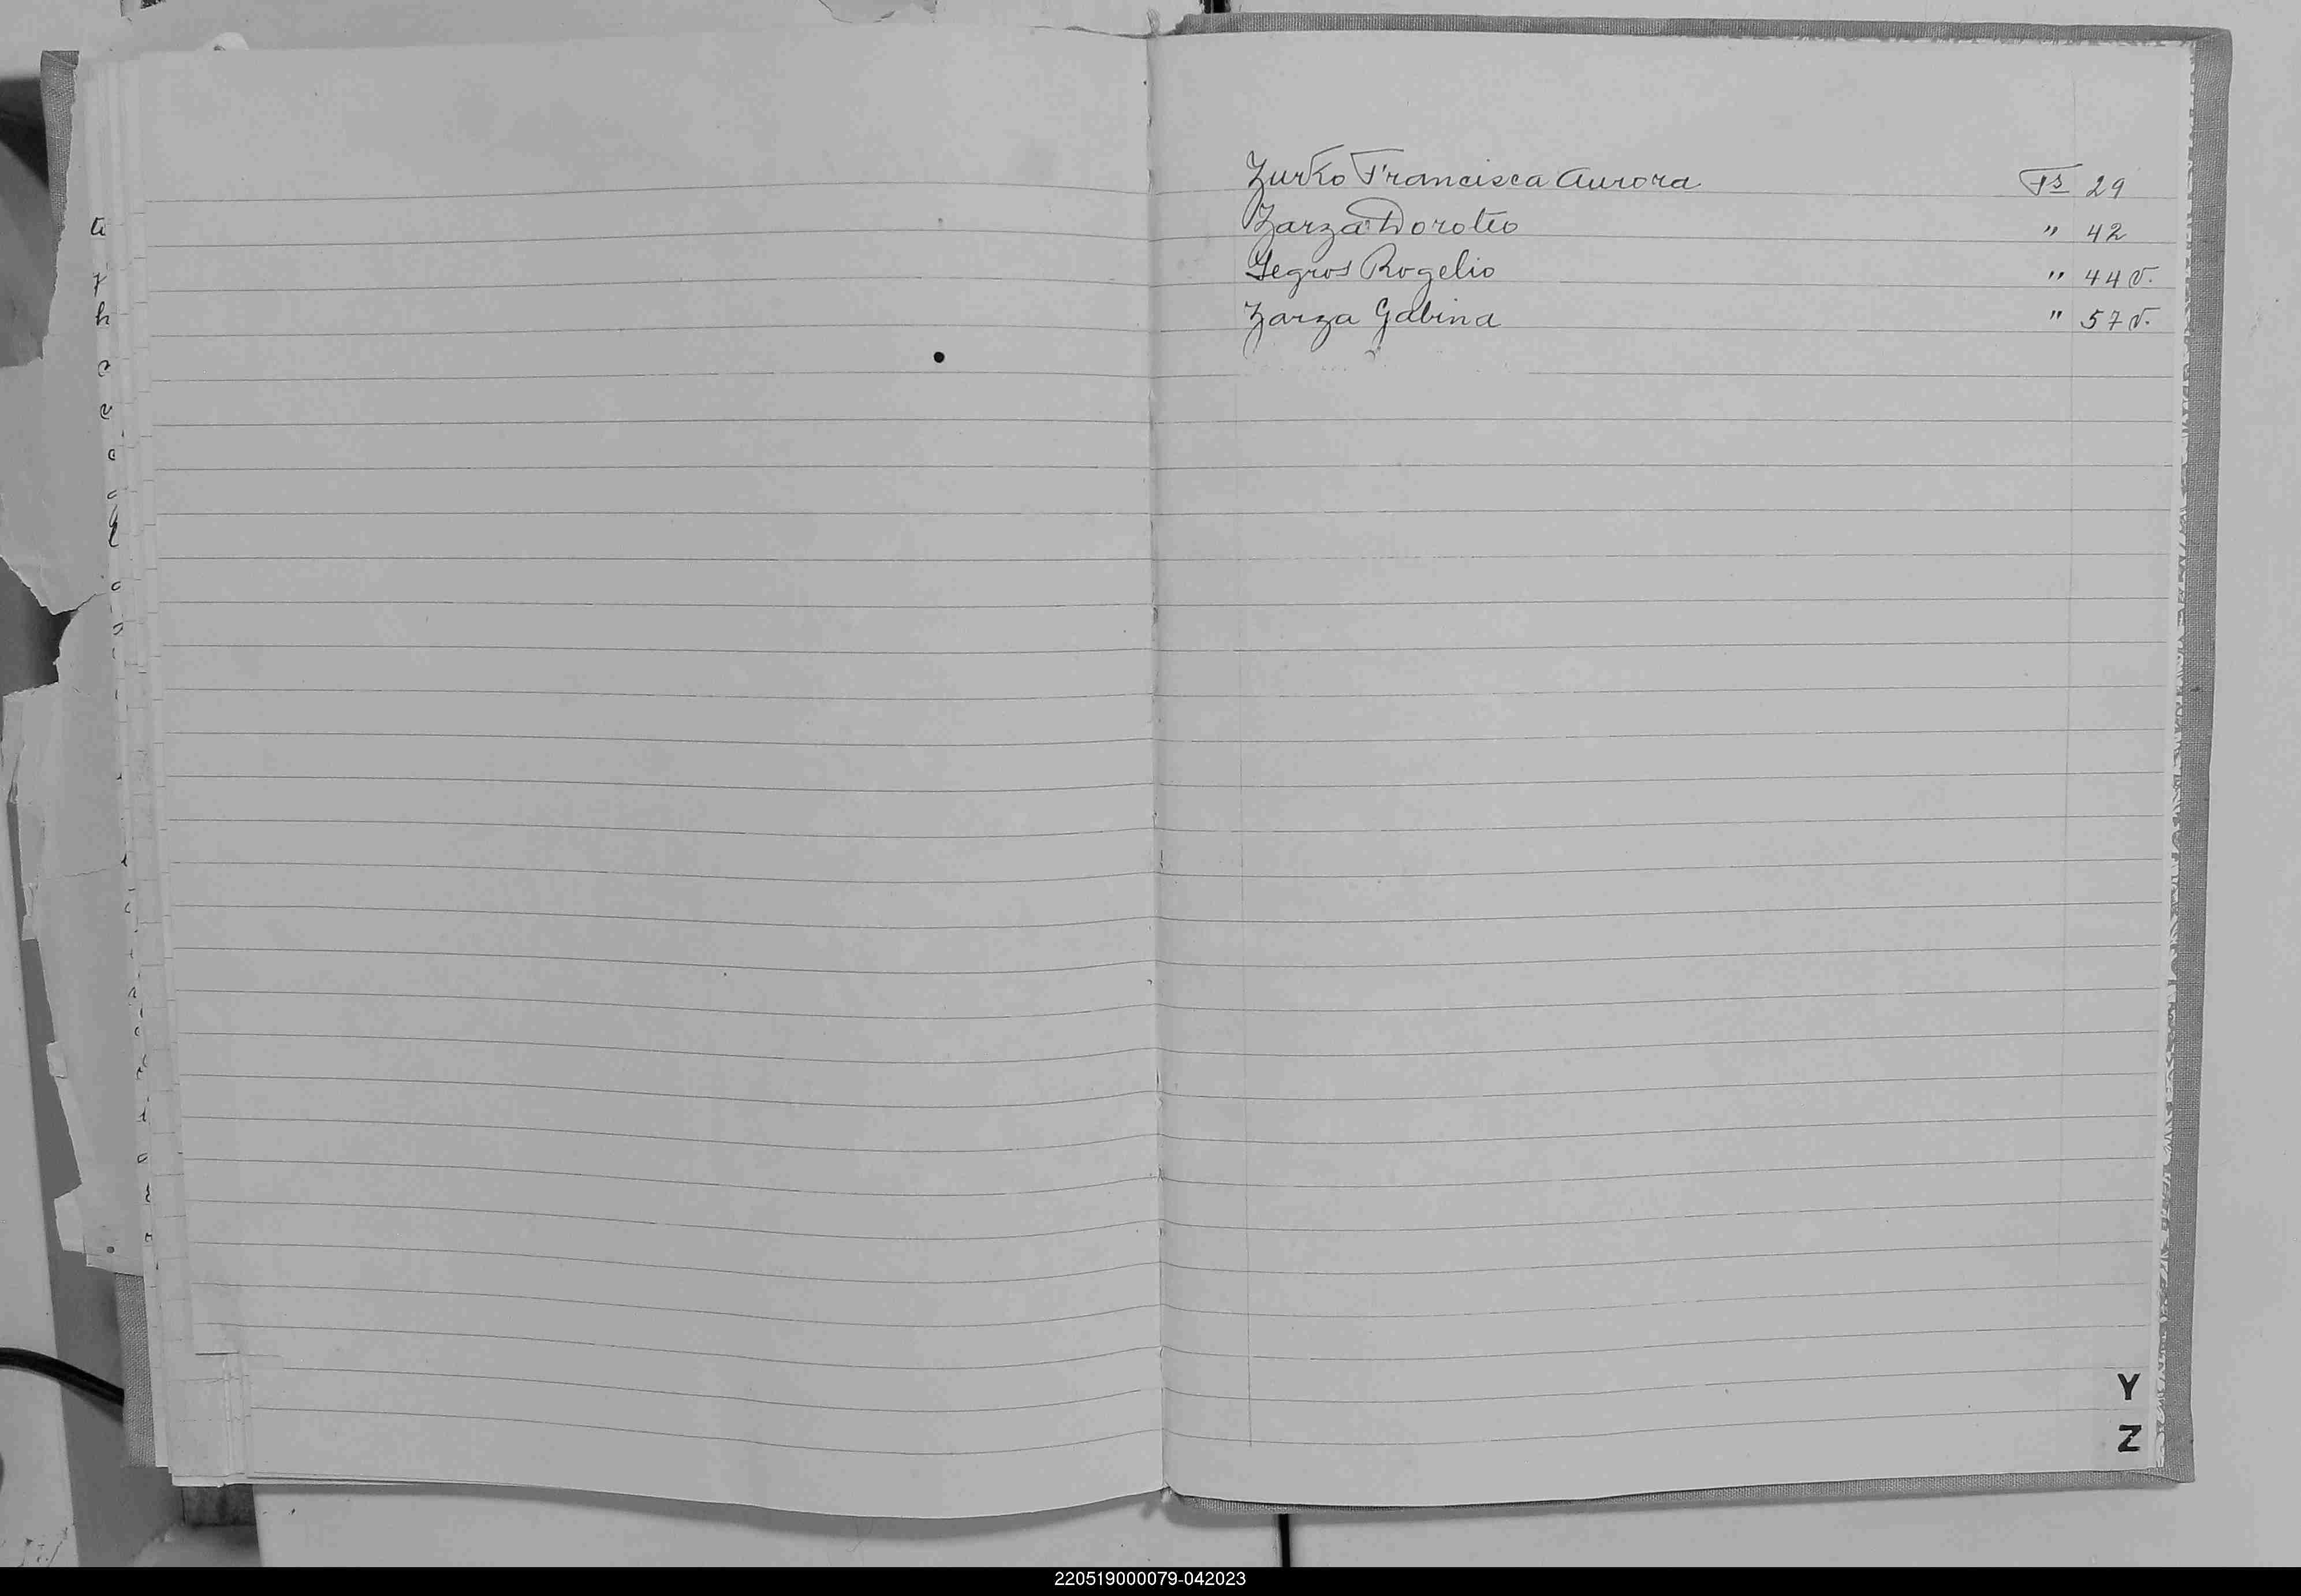 Zurko Francisca Aurora Fs 29
Zarza Doroteo " 42
Yegros Rogelio " 44 v.
Zarza Gabina " 57 v.
Y
Z
220519000079-042023